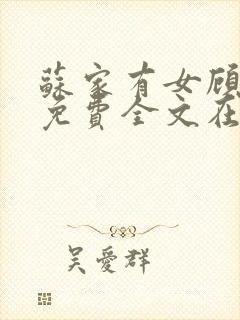 蘇家有女顾
免費全文在
吴愛群